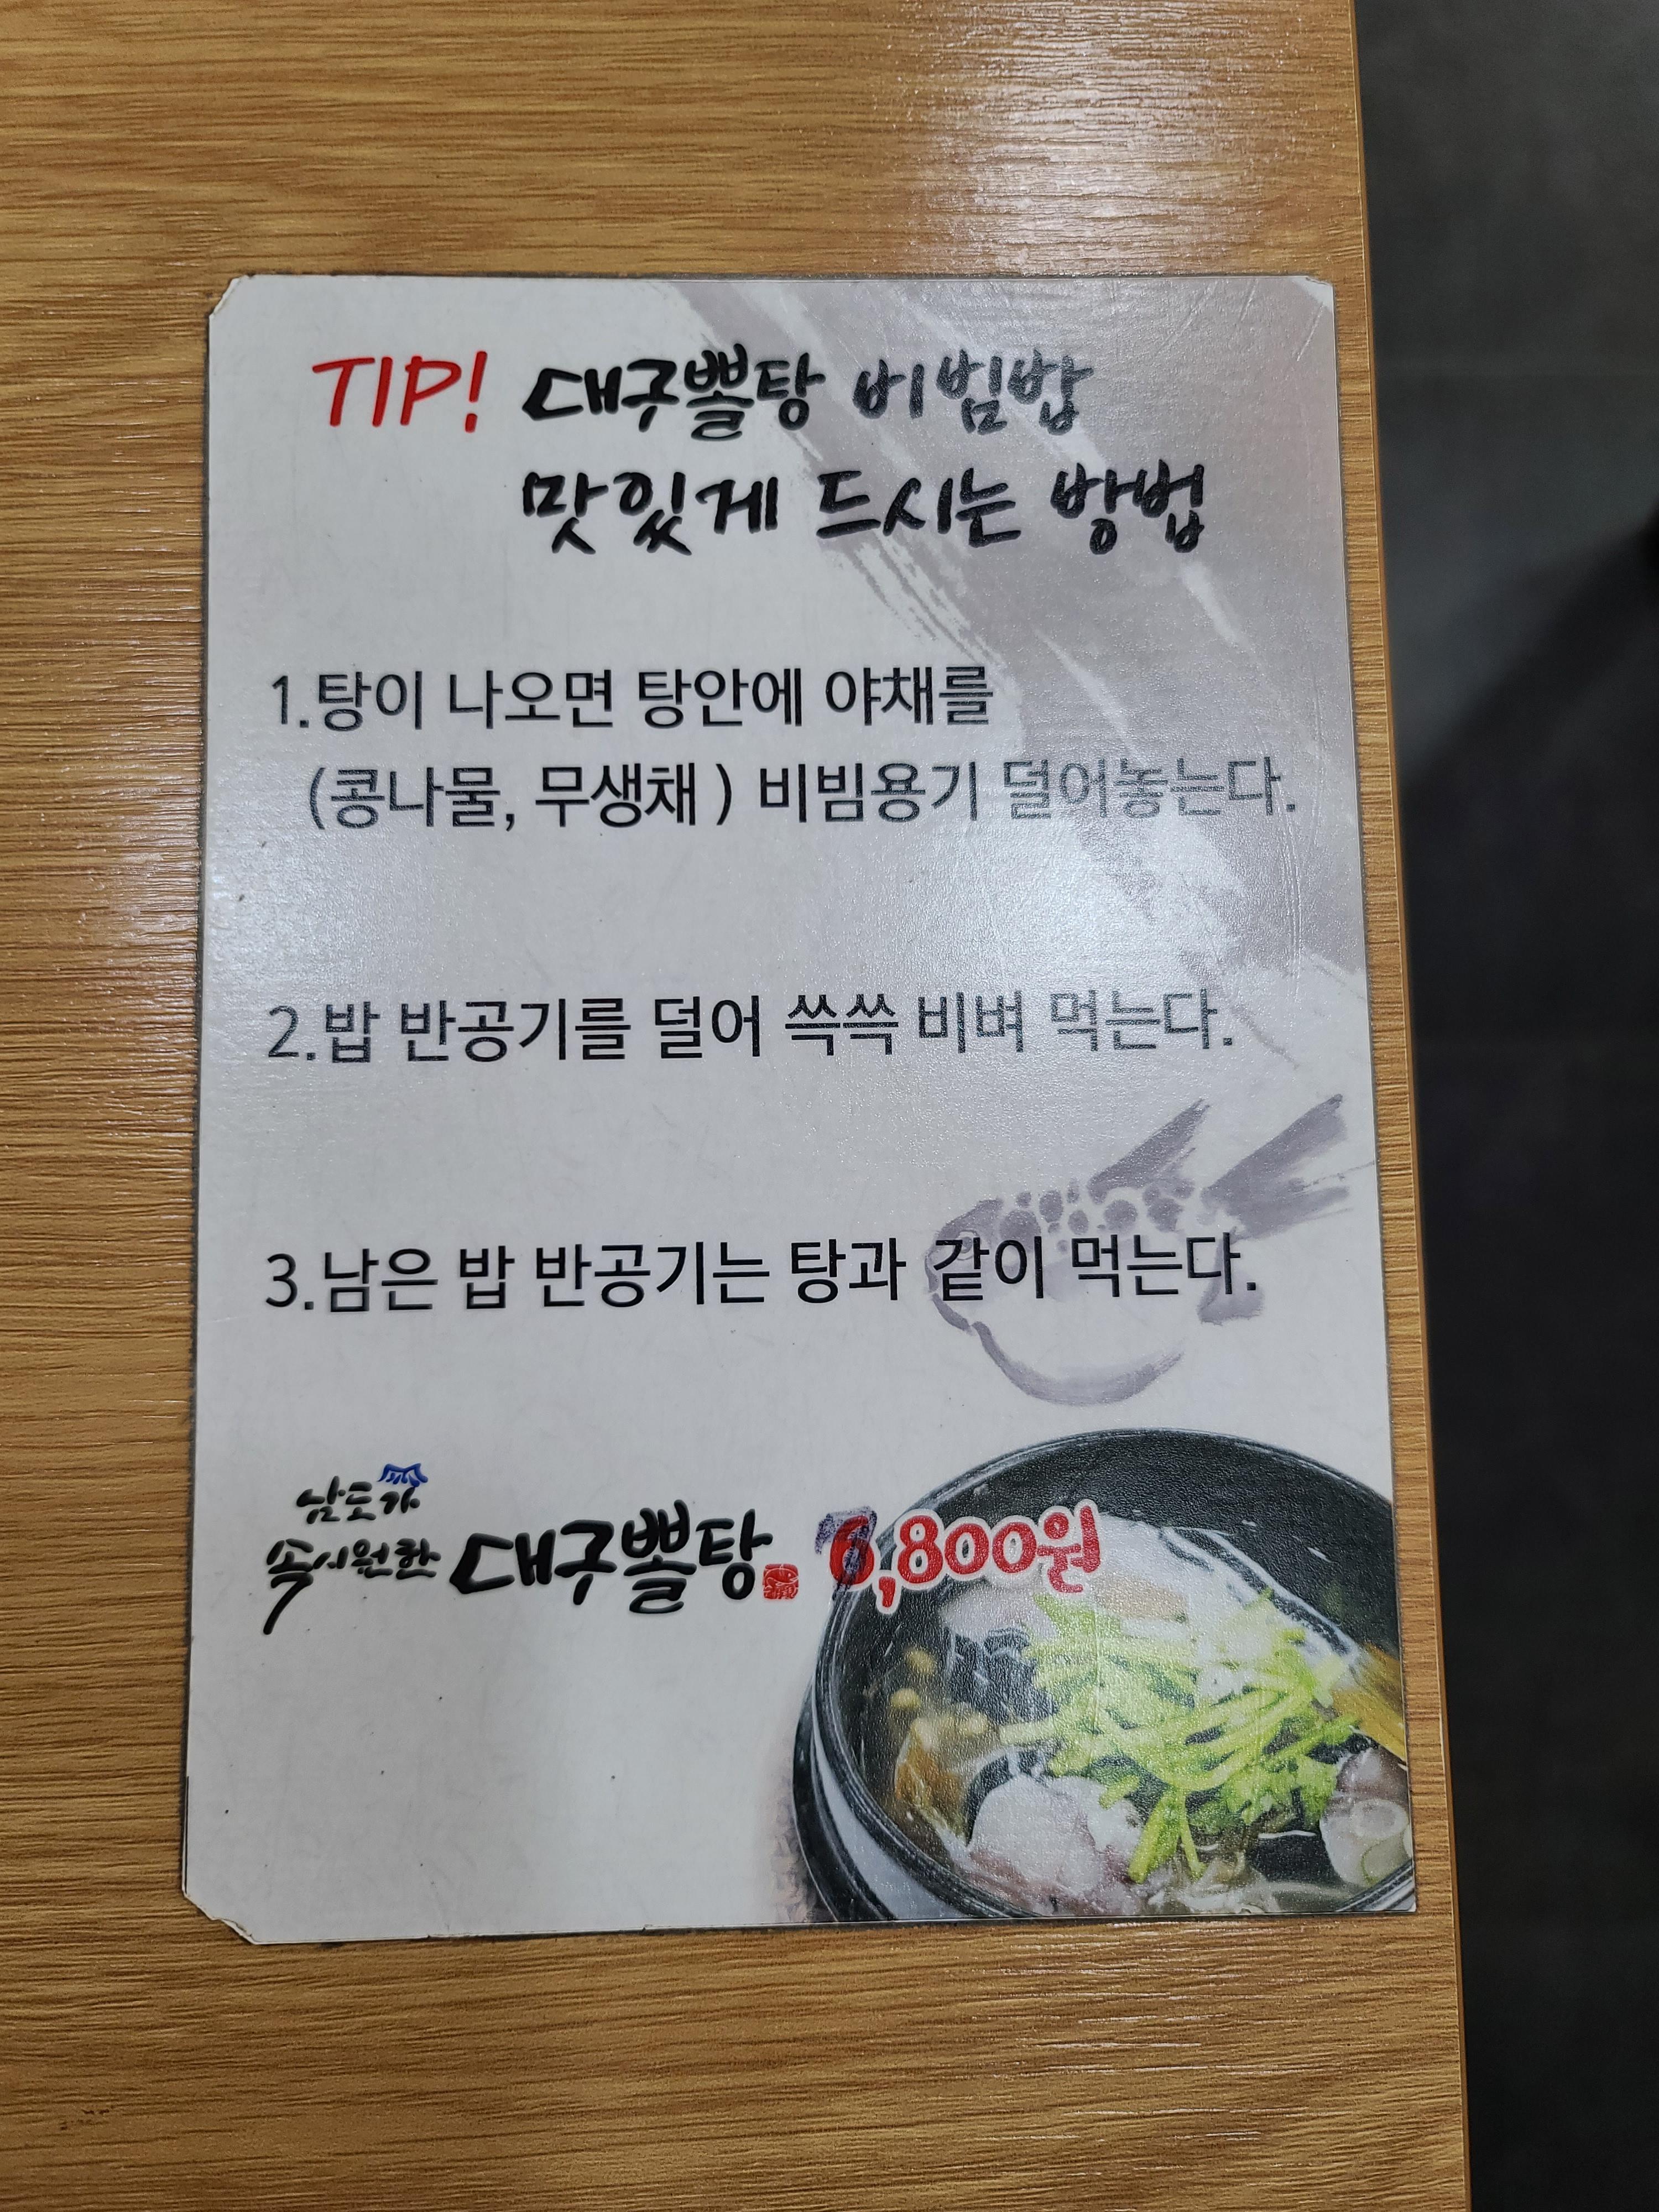 TIP! 대구뽈탕 비빔밥
맛있게 드시는 방법
1.탕이 나오면 탕안에 야채를
(콩나물, 무생채 ) 비빔용기 덜어놓는다.
2.밥 반공기를 덜어 쓱쓱 비벼 먹는다.
3.남은 밥 반공기는 탕과 같이 먹는다.
남도가
속시원한 대구뽈탕 7,800원